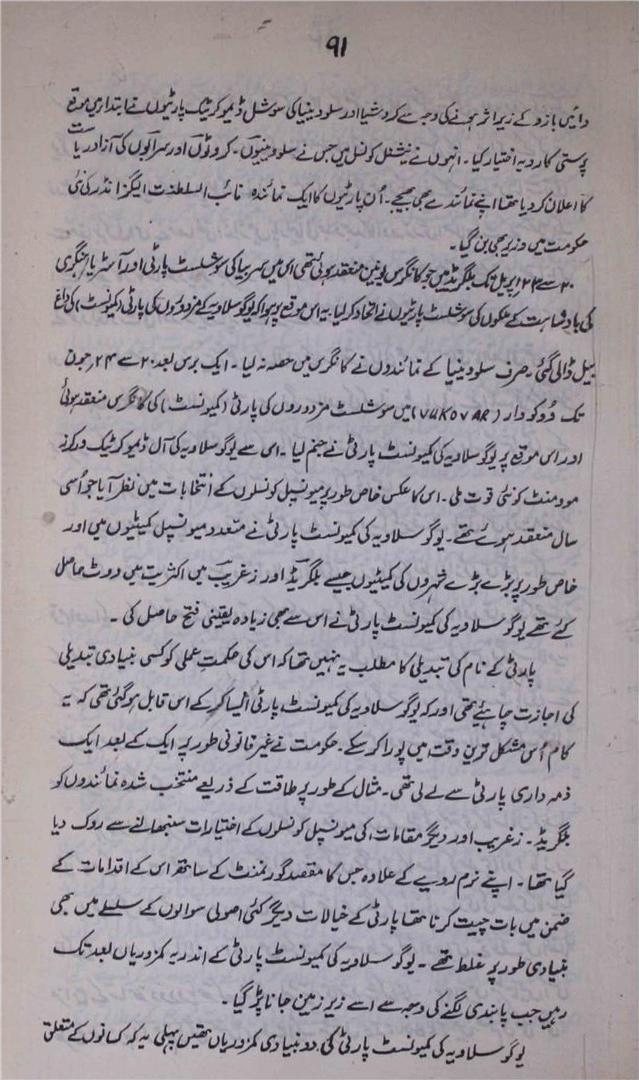 ۹۱
دائیں بازو کے زیر اثر ہونے کی وجہ سے کروشیا اور سلووینیا کی سوشل ڈیموکریٹک پارٹیوں نے ابتدا ہی موقع
پرستی کا رویہ اختیار کیا۔ انہوں نے نیشنل کونسل میں جس نے سلووینیوں۔ کروٹوں اور سربوں کی آزاد ریاست
کا اعلان کر دیا تھا اپنے نمائندے بھی بھیجے۔ اُن پارٹیوں کا ایک نمائندہ نائب السلطنت الیگزانڈر کی نئی
حکومت میں وزیر بھی بن گیا۔
۲۰ سے ۲۳ اپریل تک بلگریڈ میں جو کانگرس یونین منعقد ہوئی تھی اس میں سربیا کی سوشلسٹ پارٹی اور آسٹریا ہنگری
کی بادشاہت کے ملکوں کی سوشلسٹ پارٹیوں نے اتحاد کر لیا۔ یہ اس موقع پر ہوا کہ یوگوسلاویہ کے مزدوروں کی پارٹی (کمیونسٹ) کی داغ
بیل ڈالی گئی۔ صرف سلووینیا کے نمائندوں نے کانگرس میں حصہ نہ لیا۔ ایک برس بعد ۲۰ سے ۲۴ جون
تک ووکووار (VUKOVAR) میں سوشلسٹ مزدوروں کی پارٹی (کمیونسٹ) کی کانگرس منعقد ہوئی
اور اس موقع پر یوگوسلاویہ کی کمیونسٹ پارٹی نے جنم لیا۔ اسی سے یوگوسلاویہ کی آل ڈیموکریٹک ورکرز
موومنٹ کو نئی قوت ملی۔ اس کا عکس خاص طور پر میونسپل کونسلوں کے انتخابات میں نظر آیا جو اُسی
سال منعقد ہوئے تھے۔ یوگوسلاویہ کی کمیونسٹ پارٹی نے متعدد میونسپل کمیٹیوں میں اور
خاص طور پر بڑے بڑے شہروں کی کمیٹیوں جیسے بلگریڈ اور زغریب میں اکثریت میں ووٹ حاصل
کئے تھے یوگوسلاویہ کی کمیونسٹ پارٹی نے اس سے بھی زیادہ یقینی فتح حاصل کی۔
پارٹی کے نام کی تبدیلی کا مطلب یہ نہیں تھا کہ اس کی حکمت عملی کو کسی بنیادی تبدیلی
کی اجازت چاہئے تھی اور کہ یوگوسلاویہ کی کمیونسٹ پارٹی ایسا کر کے اس قابل ہو گئی تھی کہ یہ
کام اُس مشکل ترین وقت میں پورا کر سکے۔ حکومت نے غیر قانونی طور پر ایک کے بعد ایک
ذمہ داری پارٹی سے لے لی تھی۔ مثال کے طور پر طاقت کے ذریعے منتخب شدہ نمائندوں کو
بلگریڈ۔ زغریب اور دیگر مقامات کی میونسپل کونسلوں کے اختیارات سنبھالنے سے روک دیا
گیا تھا۔ اپنے نرم رویے کے علاوہ جس کا مقصد گورنمنٹ کے ساتھ اس کے اقدامات کے
ضمن میں بات چیت کرنا تھا پارٹی کے خیالات دیگر کئی اصولی سوالوں کے سلسلے میں بھی
بنیادی طور پر غلط تھے۔ یوگوسلاویہ کی کمیونسٹ پارٹی کے اندر یہ کمزوریاں بعد تک
رہیں جب پابندی لگنے کی وجہ سے اسے زیر زمین جانا پڑ گیا۔
یوگوسلاویہ کی کمیونسٹ پارٹی کی دو بنیادی کمزوریاں تھیں پہلی یہ کہ کسانوں کے متعلق